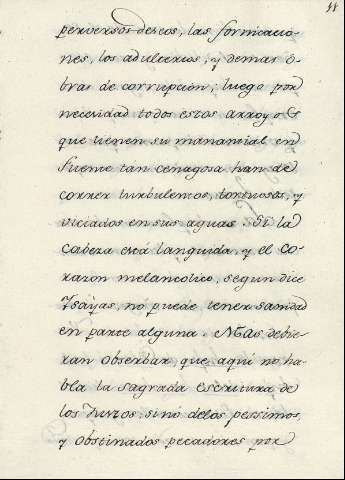 11
perversos deseos, las fornicacio-
nes, los adulterios, y demas o-
bras de corrupcion; luego por
necesidad todos estos arroyos
que tienen su manantial en
fuente tan cenagosa han de
correr turbulentos, tortuosos, y
viciados en sus aguas. Si la
Cabeza está languida, y el co-
razon melancolico, segun dice
Ysayas, no puede tener sanidad
en parte alguna. Mas debie-
ran obserbar, que aquí no ha-
bla la sagrada escritura de
los Justos, sinó delos pessimos,
y obstinados pecadores por